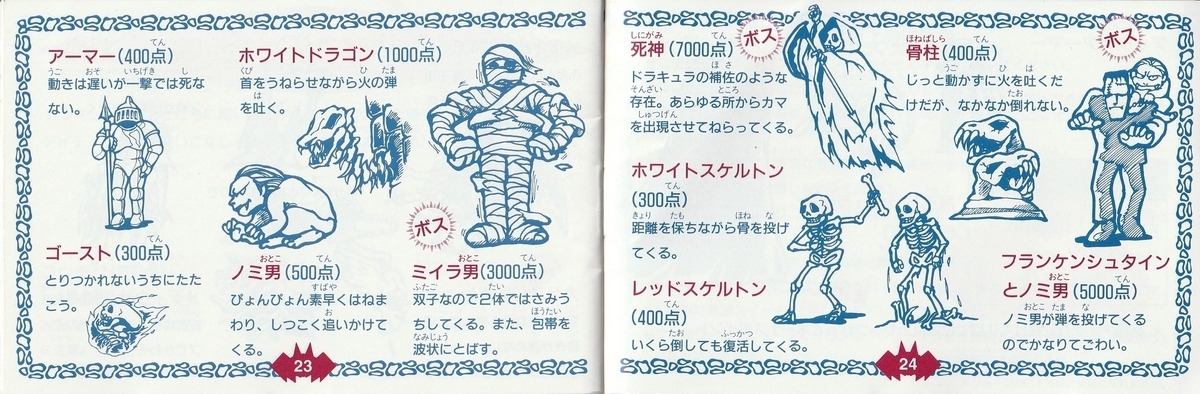 アーマー(400点)
動きは遅いが一撃では死な
ない。
ホワイトドラゴン(1000点)
首をうねらせながら火の弾
を吐く。
ゴースト(300点)
とりつかれないうちにたた
こう。
ノミ男(500点)
ぴょんぴょん素早くはねま
わり、しつこく追いかけて
くる。
ボス
ミイラ男(3000点)
双子なので2体ではさみう
ちしてくる。また、包帯を
波状にとばす。
23
死神(7000点)
ボス
ドラキュラの補佐のような
存在。あらゆる所からカマ
を出現させてねらってくる。
ホワイトスケルトン
(300点)
距離を保ちながら骨を投げ
てくる。
レッドスケルトン
(400点)
いくら倒しても復活してくる。
骨柱(400点)
じっと動かずに火を吐くだ
けだが、なかなか倒れない。
ボス
フランケンシュタイン
とノミ男(5000点)
ノミ男が弾を投げてくる
のでかなりてごわい。
24